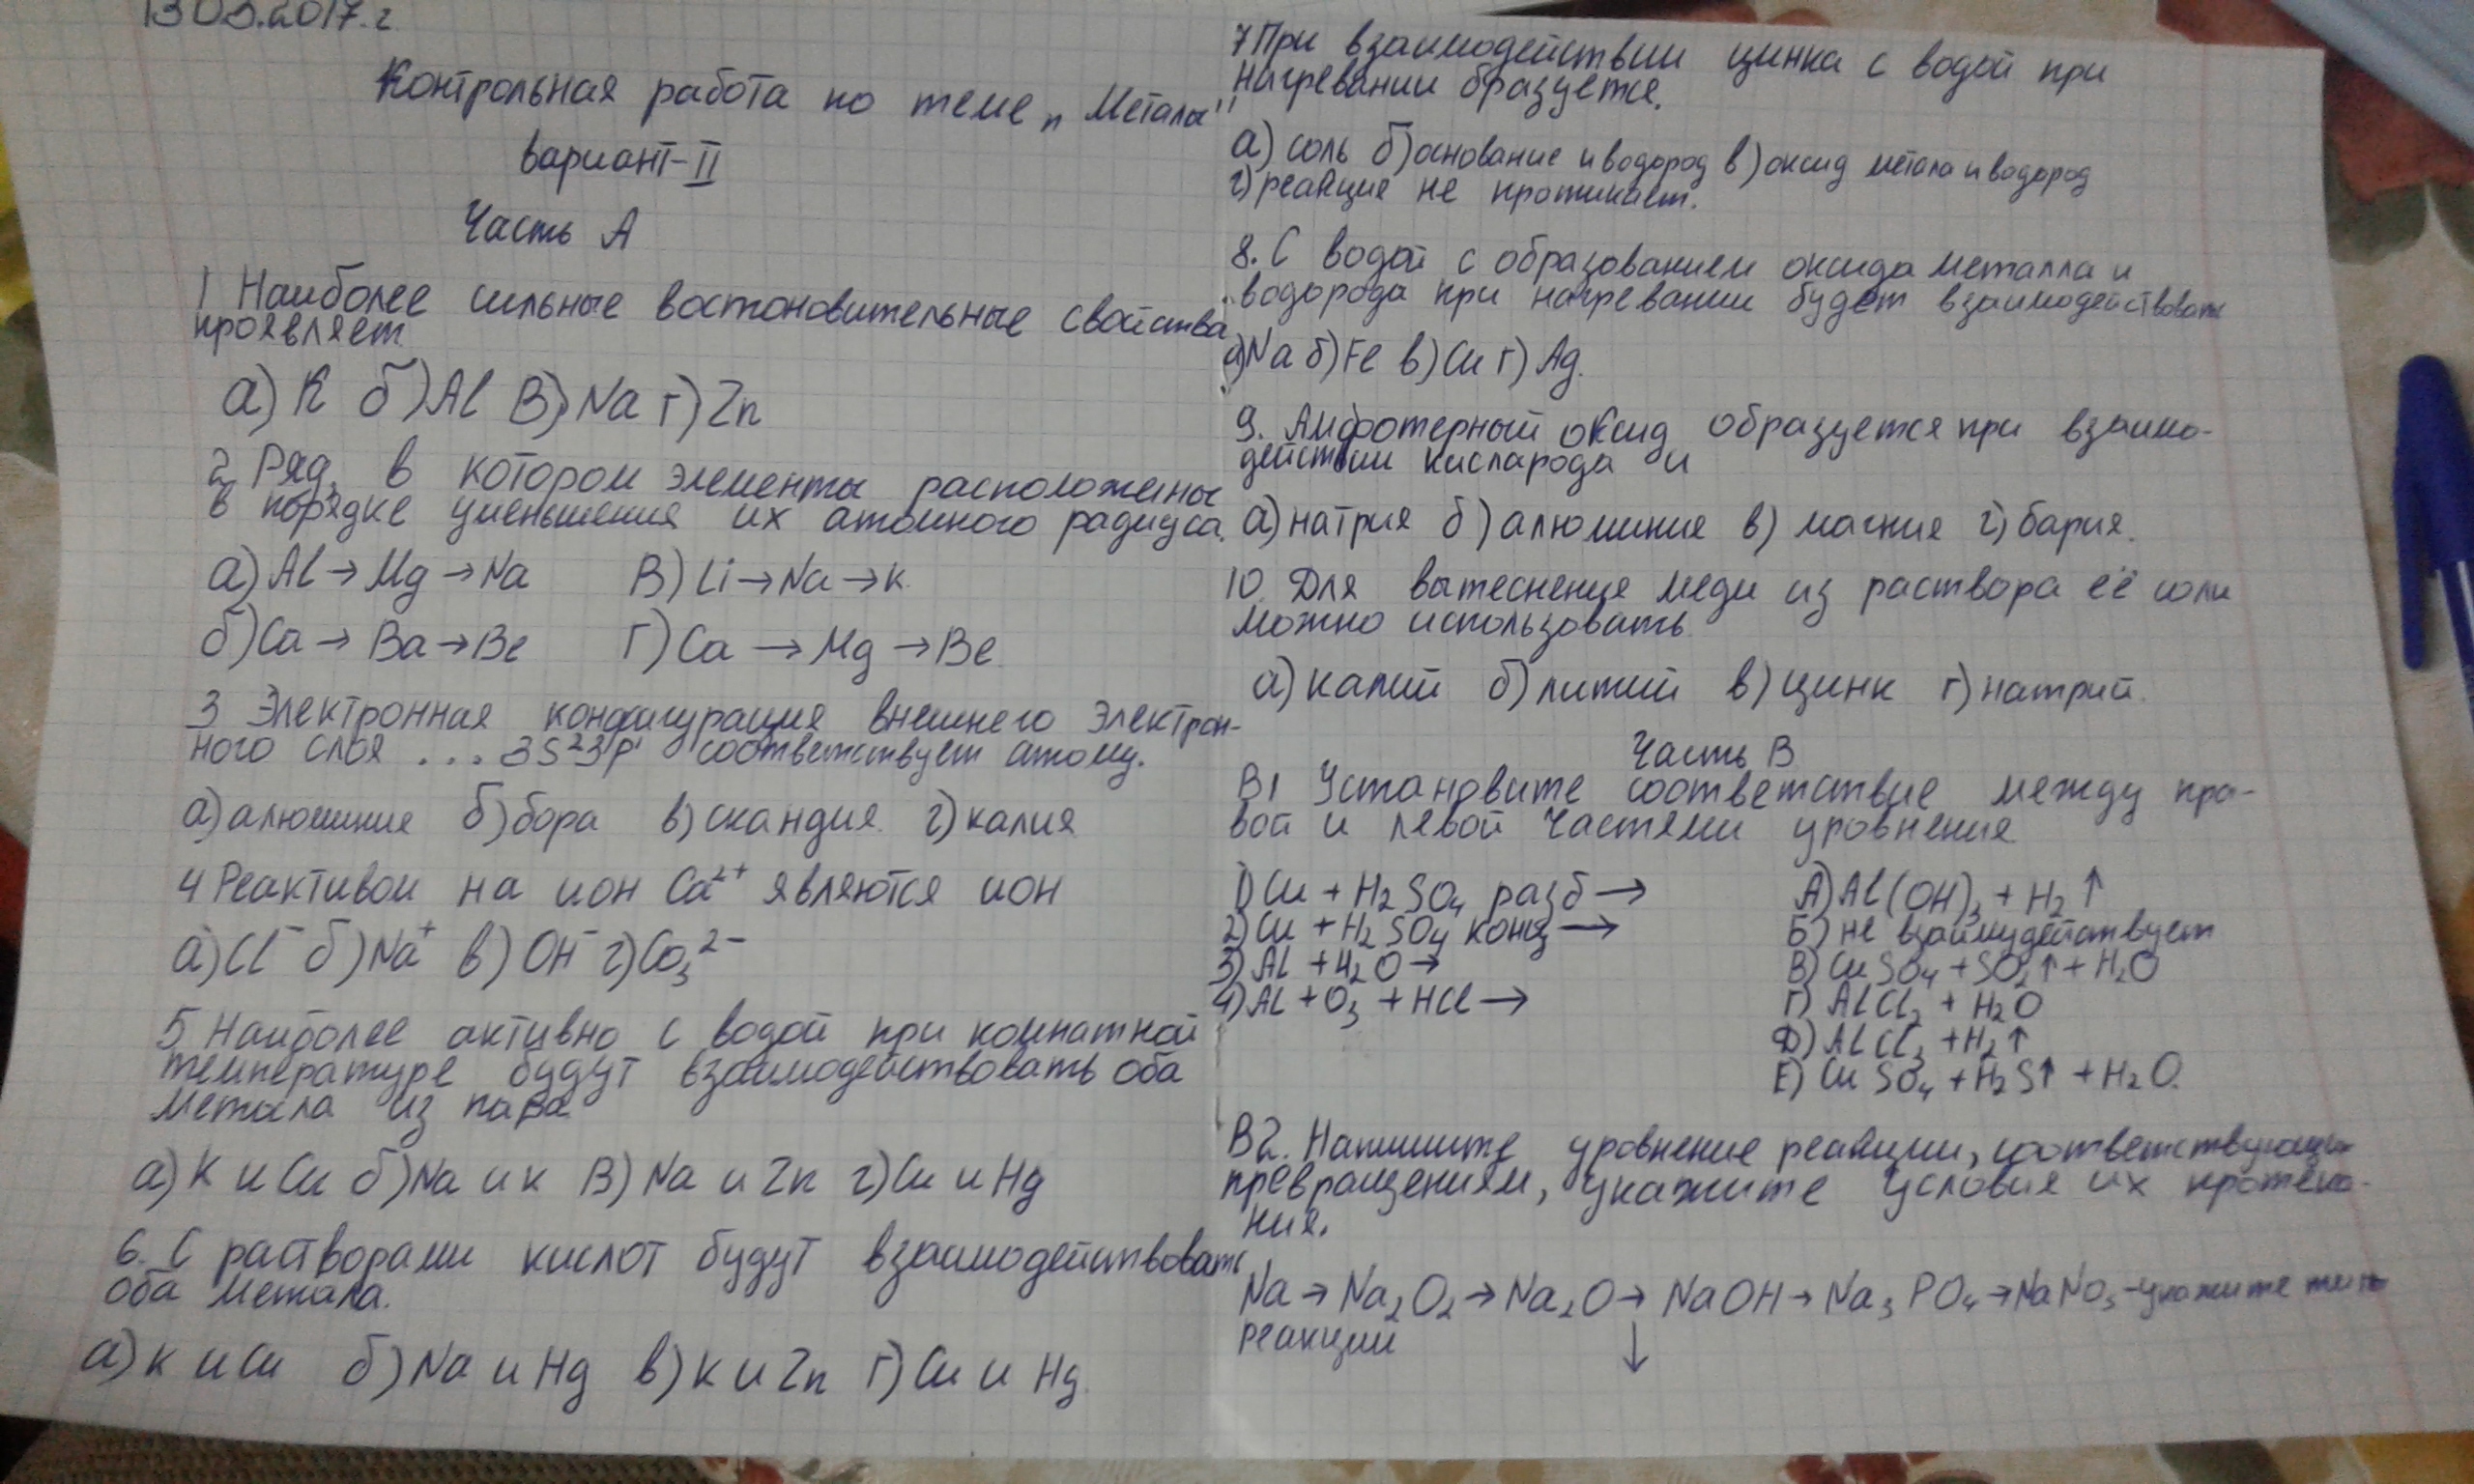 13 03.2017.г.
Контрольная работа по теме „Металы"
вариант-II
Часть А
1 Наиболее сильные востоновительные свойства
проявляет
а) K б) Al В) Na г) Zn
2 Ряд, в котором элементы расположены
в порядке уменьшения их атомного радиуса.
а) Al → Mg → Na В) Li → Na → K.
б) Ca → Ba → Be Г) Ca → Mg → Be
3 Электронная конфигурация внешнего электрон-
ного слоя ... 3S²3p¹ соответствует атому.
а) алюминие б) бора в) скандия. г) калия
4 Реактивом на ион Ca²⁺ являются ион
а) Cl⁻ б) Na⁺ в) OH⁻ г) Co₃²⁻
5 Наиболее активно с водой при комнатной
температуре будут взаимодействовать оба
метала из пара
а) K и Cu б) Na и K В) Na и Zn г) Cu и Hg
6. С растворами кислот будут взаимодействовать
оба метала.
а) K и Cu б) Na и Hg в) K и Zn Г) Cu и Hg.
7 При взаимодействии цинка с водой при
нагревании бразуется.
а) соль б) основание и водород в) оксид метала и водород
г) реакцие не протикает.
8. С водой с образованием оксида металла и
водорода при нагревании будет взаимодействовать
а) Na б) Fe в) Cu г) Ag.
9. Амфотерный оксид образуется при взаимо-
действии кисларода и
а) натрия б) алюминие в) магние г) бария.
10. Для вытеснение меди из раствора её соли
можно использовать
а) калий б) литий в) цинк г) натрий.
Часть В
В1 Установите соответствие между пра-
вой и левой частями уровнения
1) Cu + H₂SO₄ разб →
2) Cu + H₂SO₄ конц →
3) Al + H₂O →
4) Al + O₃ + HCl →
А) Al(OH)₃ + H₂↑
Б) не взаимудействует
В) CuSO₄ + SO₂↑ + H₂O
Г) AlCl₃ + H₂O
Д) AlCl₃ + H₂↑
Е) CuSO₄ + H₂S↑ + H₂O.
В2. Напишите уровнение реакции, соответствующи
превращениям, укажите условия их протека-
ния.
Na → Na₂O₂ → Na₂O → NaOH → Na₃PO₄ → NaNO₃ - укажите тип
реакции ↓